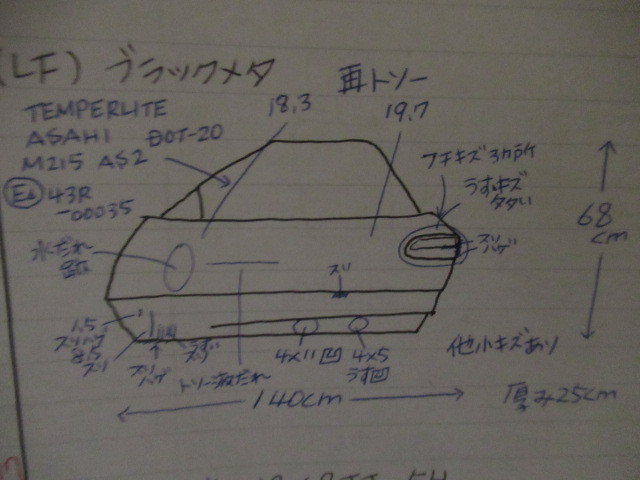 (LF) ブラックメタ
再トソー
TEMPERLITE
ASAHI DOT-20
M215 AS2
43R
-00035
18.3
19.7
フチキズ3ヶ所
うすキズ
タタい
スリ
ハゲ
68
cm
水だれ
スリ
1.5
スリハゲ
8.5
スリ
スリ
ハゲ
うす
スリ
トソー液だれ
4×11凹
4×5
うす凹
他小キズあり
140cm
厚み25cm